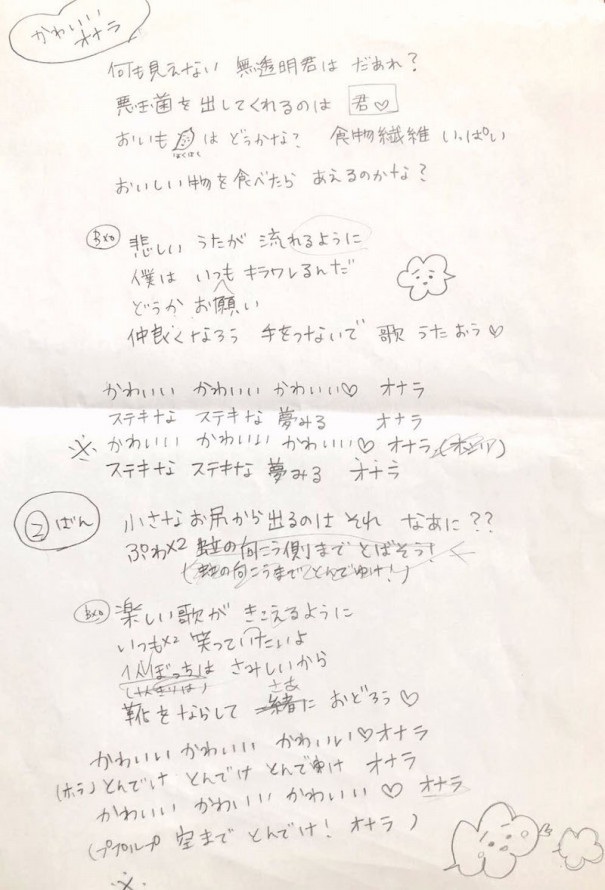 かわいい
オナラ
何も見えない 無透明君は だあれ?
悪玉菌を出してくれるのは 君♡
おいも は どうかな? 食物繊維 いっぱい
ほくほく
おいしい物を食べたら あえるのかな?
悲しい うたが 流れるように
僕は いつも キラワレるんだ
どうか お願い
仲良くなろう 手をつないで 歌 うたおう♡
かわいい かわいい かわいい♡ オナラ
ステキな ステキな 夢みる オナラ
※ かわいい かわいい かわいい♡ オナラ
ステキな ステキな 夢みる オナラ
② ばん
小さなお尻から出るのは それ なあに??
ぷわ×2 の向こう側まで とばそう!
(の向こうまで とんでゆけ!)
楽しい歌が きこえるように
いつも×2 笑っていたいよ
1人ぼっちは さみしいから
さあ
靴をならして 一緒に おどろう♡
かわいい かわいい かわいい♡オナラ
(ホラ)とんでけ とんでけ とんでゆけ オナラ
かわいい かわいい かわいい ♡ オナラ
空まで とんでけ! オナラ)
※